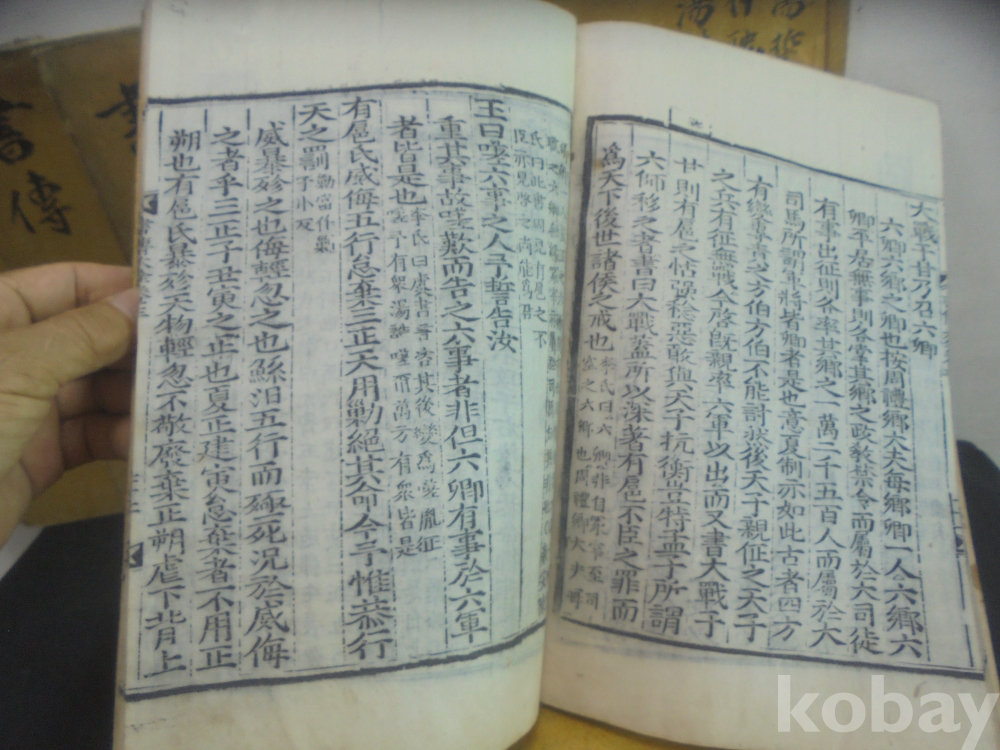 大戰于甘乃召六卿
六卿六鄉之卿也按周禮鄉大夫每鄉卿一人六鄉六
卿平居無事則各掌其鄉之政教禁令而屬於大司徒
有事出征則各率其鄉之一萬二千五百人而屬於大
司馬所謂軍將皆卿者是也意夏制亦如此古者四方
有變專責之方伯方伯不能討然後天子親征之天子
之兵有征無戰今啓既親率六軍以出而又書大戰于
甘則有扈之怙强稔惡敢與天子抗衡豈特孟子所謂
六師移之者書曰大戰蓋所以深著有扈不臣之罪而
爲天下後世諸侯之戒也 李氏曰六卿非自冢宰至司
空之六卿也周禮鄉大夫
王曰嗟六事之人予誓告汝
重其事故嗟歎而告之六事者非但六卿有事於六軍
者皆是也
有扈氏威侮五行怠棄三正天用勦絶其命今予惟恭行
天之罰 予小反
威暴殄之也侮輕忽之也鯀汨五行而殛死况於威侮
之者乎三正子丑寅之正也夏正建寅怠棄者不用正
朔也有扈氏暴殄天物輕忽不敬廢棄正朔虐下背上
書傳
kobay